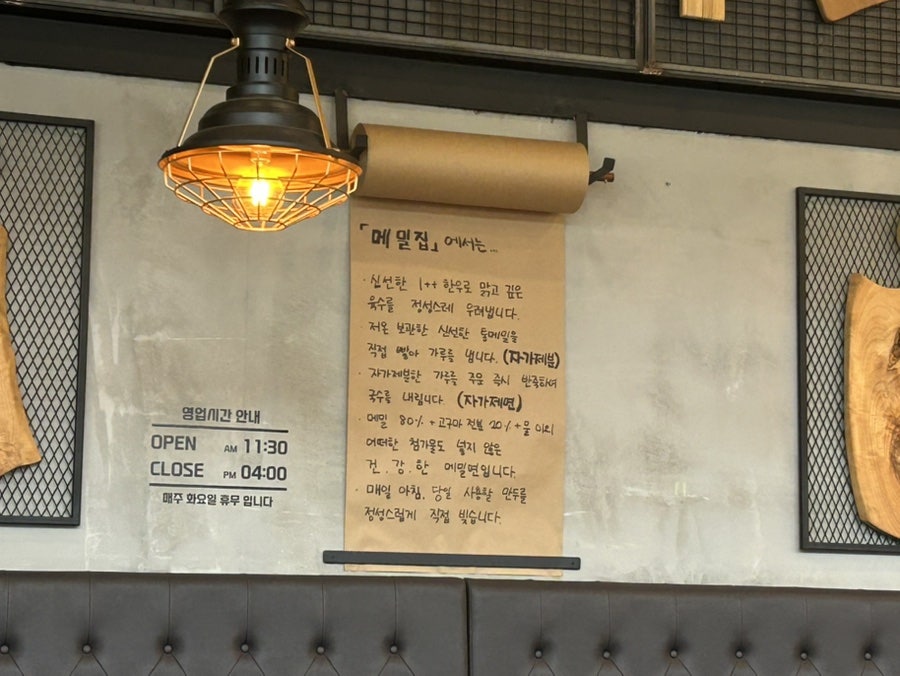 「메밀집」에서는...
· 신선한 1++ 한우로 맑고 깊은
육수를 정성스레 우려냅니다.
· 저온 보관한 신선한 통메밀을
직접 빻아 가루를 냅니다. (자가제분)
· 자가제분한 가루를 주문 즉시 반죽하여
국수를 내립니다. (자가제면)
· 메밀 80% + 고구마 전분 20% + 물 이외
어떠한 첨가물도 넣지 않은
건.강.한 메밀면입니다.
· 매일 아침, 당일 사용할 만두를
정성스럽게 직접 빚습니다.
영업시간 안내
OPEN AM 11:30
CLOSE PM 04:00
매주 화요일 휴무 입니다